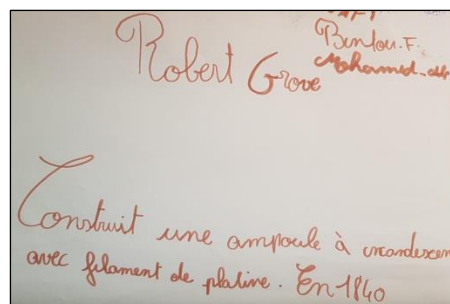 Bintou. F.
Robert Grove
Mohamed
Construit une ampoule à incandescen
avec filament de platine. En 1840